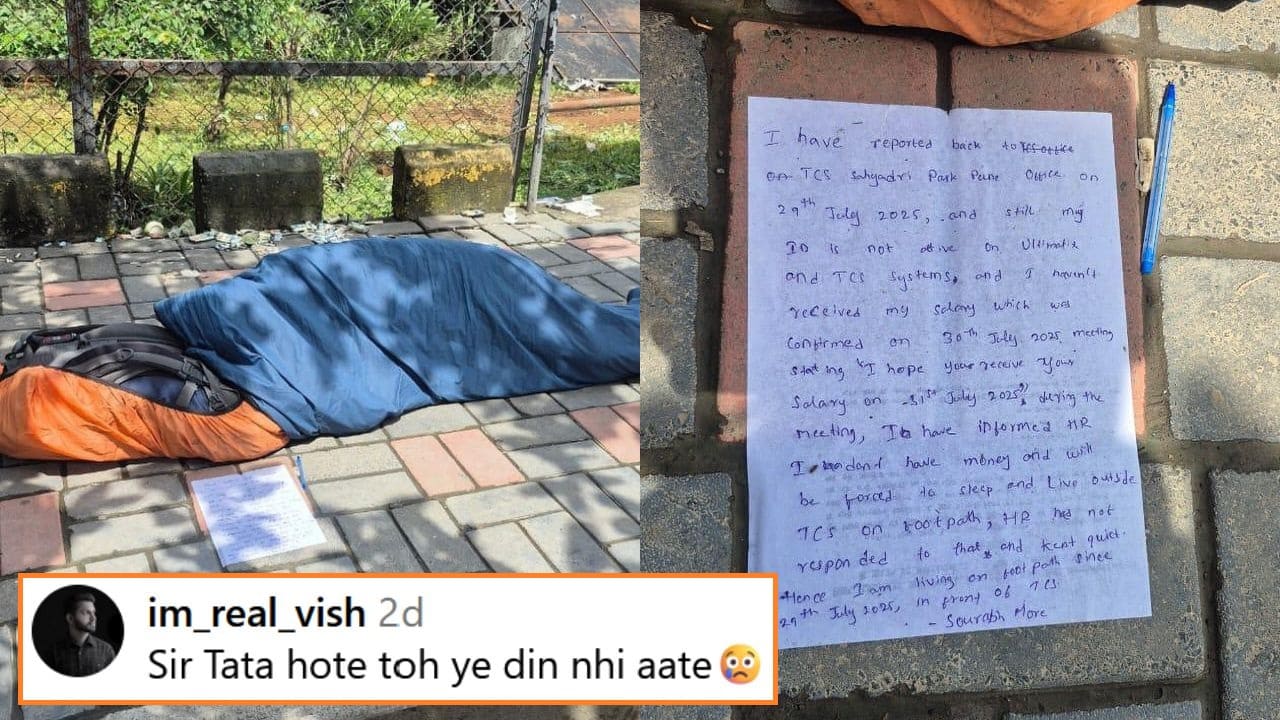 I have reported back to TCS office
on TCS Sahyadri Park Pune Office on
29th July 2025, and still my
ID is not ative on Ultimatix
and TCS systems, and I haven't
received my salary which was
Confirmed on 30th July 2025 meeting
stating "I hope your receive Your
Salary on 31st July 2025", during the
meeting, I have informed HR
I dont have money and will
be forced to sleep and Live outside
TCS on footpath, HR has not
responded to that, and kept quiet.
Hence I am living on footpath since
29th July 2025, in front of TCS
- Sourabh More
im_real_vish 2d
Sir Tata hote toh ye din nhi aate😢